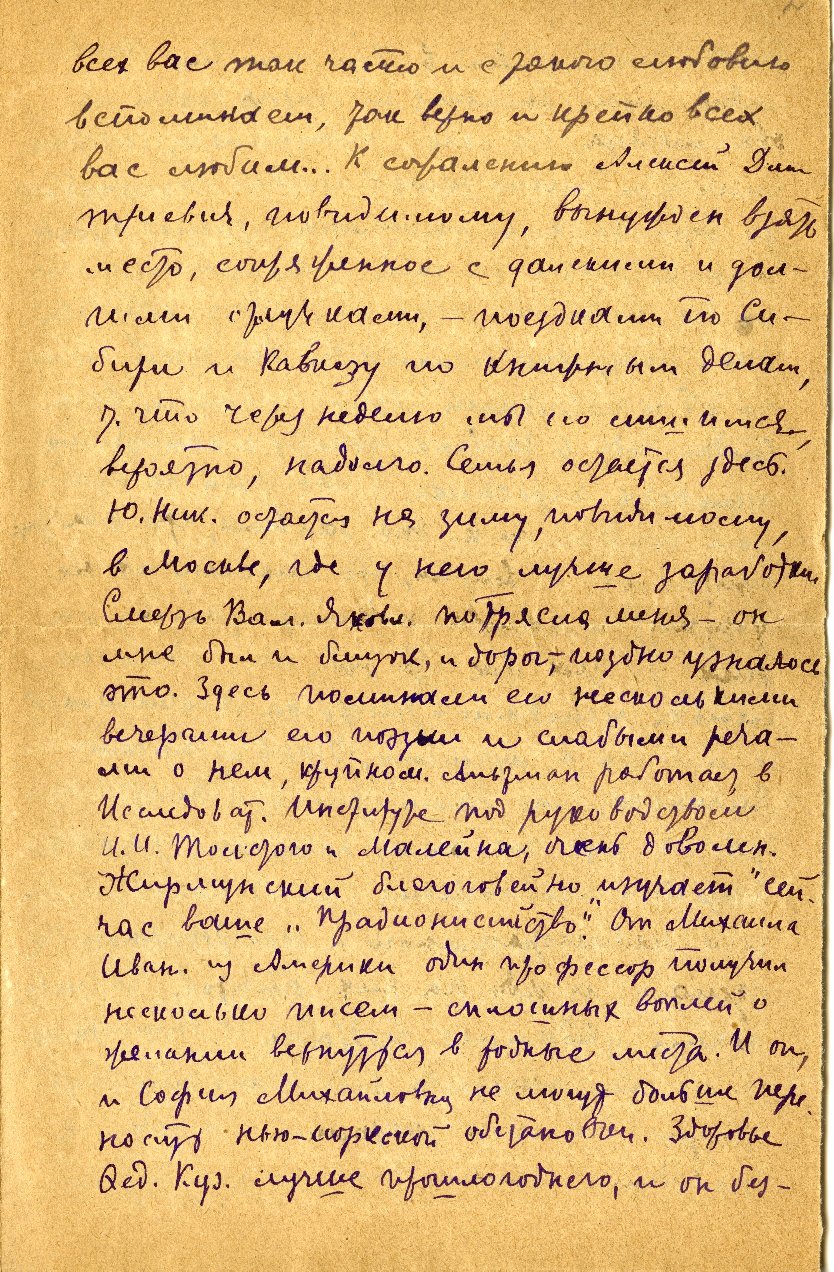 всех вас так часто и с такою любовью
вспоминаем, так верно и крепко всех
вас любим... К сожалению Алексей Дми
триевич, повидимому, вынужден взять
место, сопряженное с далекими и дол-
гими отлучками, — поездками по Си-
бири и Кавказу по книжным делам,
т. что через неделю мы его лишимся,
вероятно, надолго. Семья остается здесь.
Ю. Ник. остается на зиму, повидимому,
в Москве, где у него лучше заработки
Смерть Вал. Яковл. потрясла меня — он
мне был и близок, и дорог, поздно узналось
это. Здесь поминали его несколькими
вечерами его поэзии и слабыми реча-
ми о нем, крупном. Альтман работает в
Исследоват. Институте под руководством
И. И. Толстого и Малеина, очень доволен.
Жирмунский благоговейно изучает "сей-
час ваше „Прадионисийство". От Михаила
Иван. из Америки один профессор получил
несколько писем — сплошных воплей о
желании вернуться в родные места. И он,
и София Михайловна не могут больше пере-
носить нью-иоркской обстановки. Здоровье
Фед. Куз. лучше прошлогоднего, и он без-